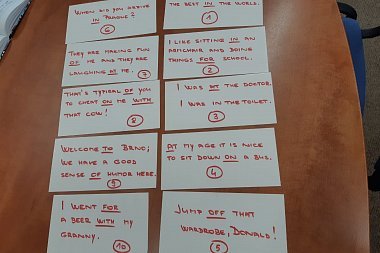 THE BEST IN THE WORLD.
1
I LIKE SITTING IN AN
ARMCHAIR AND DOING
THINGS FOR SCHOOL.
2
I WAS AT THE DOCTOR.
I WAS IN THE TOILET.
3
AT MY AGE IT IS NICE
TO SIT DOWN ON A BUS.
4
JUMP OFF THAT
WARDROBE, DONALD!
5
WHEN DID YOU ARRIVE
IN PRAGUE?
6
THEY ARE MAKING FUN
OF ME AND THEY ARE
LAUGHING AT ME.
7
THAT'S TYPICAL OF YOU
TO CHEAT ON ME WITH
THAT COW!
8
WELCOME TO BRNO;
WE HAVE A GOOD
SENSE OF HUMOR HERE.
9
I WENT FOR
A BEER WITH MY
GRANNY.
10